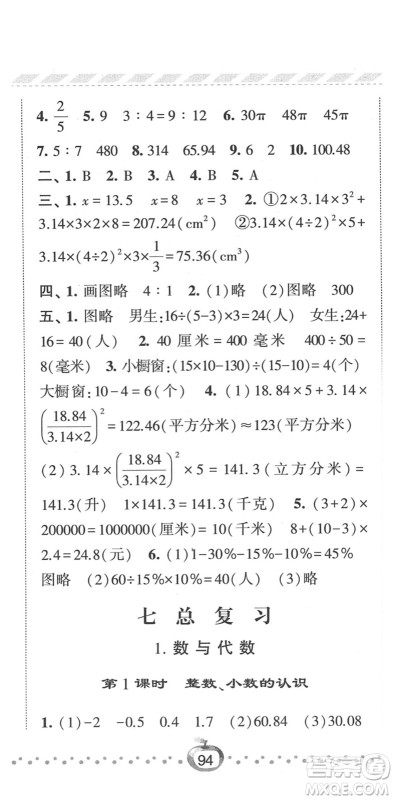 4. 2/5 5. 9 3∶4=9∶12 6. 30π 48π 45π
7. 5∶7 480 8. 314 65.94 9. 6 2 10. 100.48
二、1. B 2. B 3. A 4. B 5. A
三、1. x=13.5 x=8 x=3 2. ①2×3.14×3²+
3.14×3×2×8=207.24(cm²) ②3.14×(4÷2)²×5+
3.14×(4÷2)²×3×1/3=75.36(cm³)
四、1. 画图略 4∶1 2. (1)略 (2)图略 300
五、1. 图略 男生:16÷(5-3)×3=24(人) 女生:24+
16=40(人) 2. 40厘米=400毫米 400÷50=
8(毫米) 3. 小橱窗:(15×10-130)÷(15-10)=4(个)
大橱窗:10-4=6(个) 4. (1)18.84×5+3.14×
(18.84/3.14×2)²=122.46(平方分米)≈123(平方分米)
(2)3.14×(18.84/3.14×2)²×5=141.3(立方分米)=
141.3(升) 1×141.3=141.3(千克) 5. (3+2)×
200000=1000000(厘米)=10(千米) 8+(10-3)×
2.4=24.8(元) 6. (1)1-40%-15%=45%
图略 (2)60÷15%×10%=40(人) (3)略
七 总复习
1. 数与代数
第1课时 整数、小数的认识
1. (1)-2 -0.5 0.4 1.7 (2)60.84 (3)30.08
94
答案圈
MXQE.COM